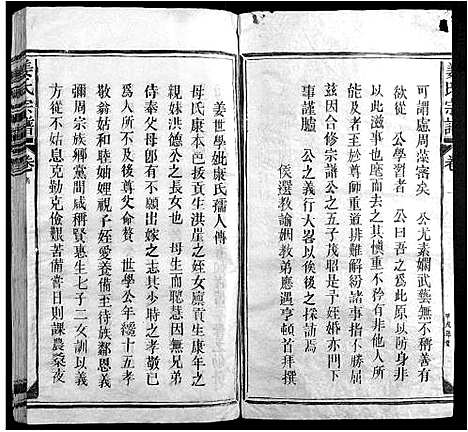 姜氏宗譜
卷
可謂慮周藻密矣　公尤素嫻武藝無不稱善有
欲從　公學習者　公曰吾之爲此原以防身非
尤此好勇也其慎重不矜有非他人所
能及者至於尊師重道排難解紛諸事指不勝屈
茲因合修宗譜公之五子茂昭是予姪婿亦問下
事謹臚　公之義行大畧以俟後之採訪焉
侯選教諭姻教弟應遇亨頓首拜撰
姜世學妣康氏孺人傳
母氏康本邑拔貢生洪崖之姪女廩貢生康年之
親妹洪德公之長女也　母生而聰慧因無兄弟
侍奉父母卽有不願出嫁之志其少時之孝敬已
爲人所不及後尊父命贅　世學公年纔十五孝
敬翁姑和睦妯娌視子姪愛養備至待族鄰恩義
彌周宗族鄉黨間咸稱賢惠生七子二女訓以義
方從不姑息克勤克儉艱苦備嘗日則課農桑夜
姜氏宗譜
卷